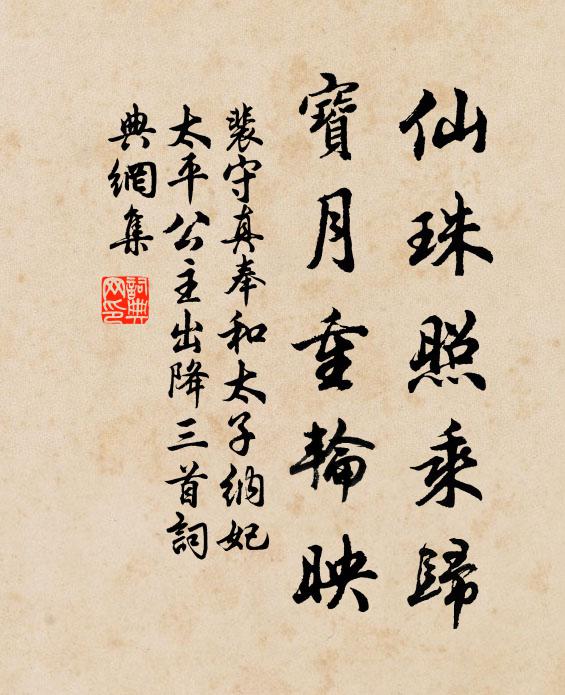 仙珠照乘歸
寶月重輪映
裴守真奉和太子納妃
太平公主出降三首詞
典網集
詞典網印